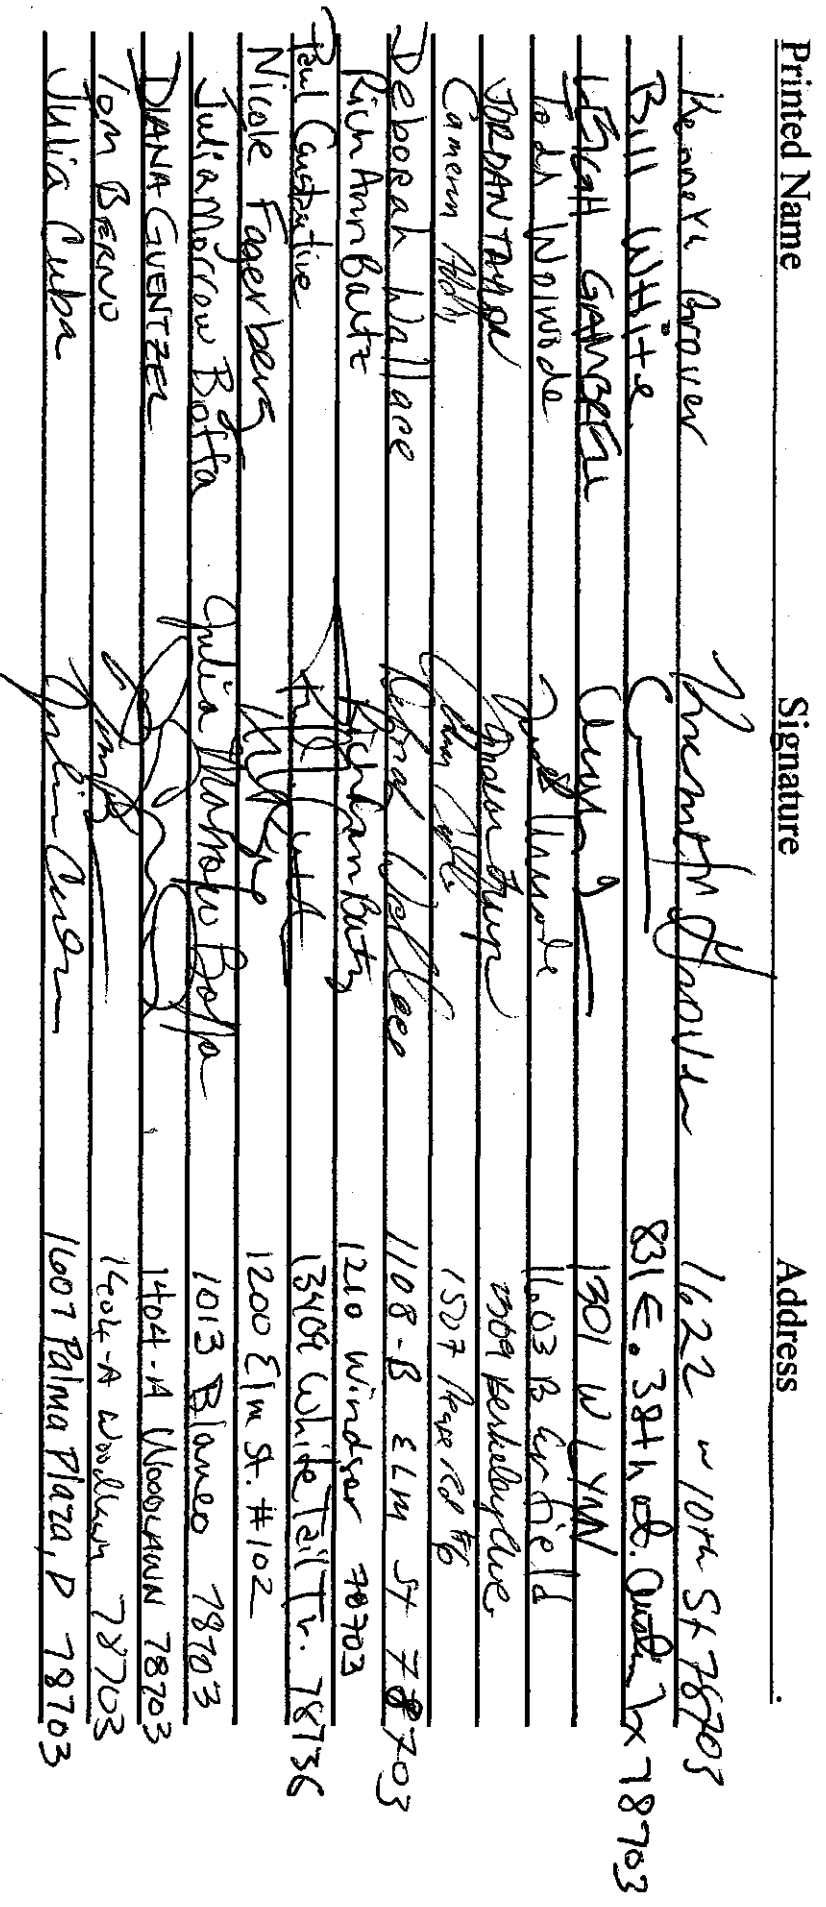 Printed Name Signature Address
Kenneth Brower 1622 W 10th St 78703
Bill White 831 E. 38th st. Austin Tx 78703
GAMBRELL 1301 W LYNN
Todd Woiwode 1603 B Enfield
JORDAN 2309 Berkeley Ave.
Cameron 1507
Deborah Wallace Deborah Wallace 1108-B ELM St 78703
Rich Ann Baltz 1210 Windsor 78703
Paul 13409 White Tail Tr. 78736
Nicole Fagerberg 1200 Elm St. #102
Julia Morrow Boffa Julia Morrow Boffa 1013 Blanco 78703
DIANA GUENTZEL 1404-A WOODLAWN 78703
TOM BERNO 1404-A Woodlawn 78703
Julia Cuba Julia Cuba 1607 Palma Plaza, D 78703